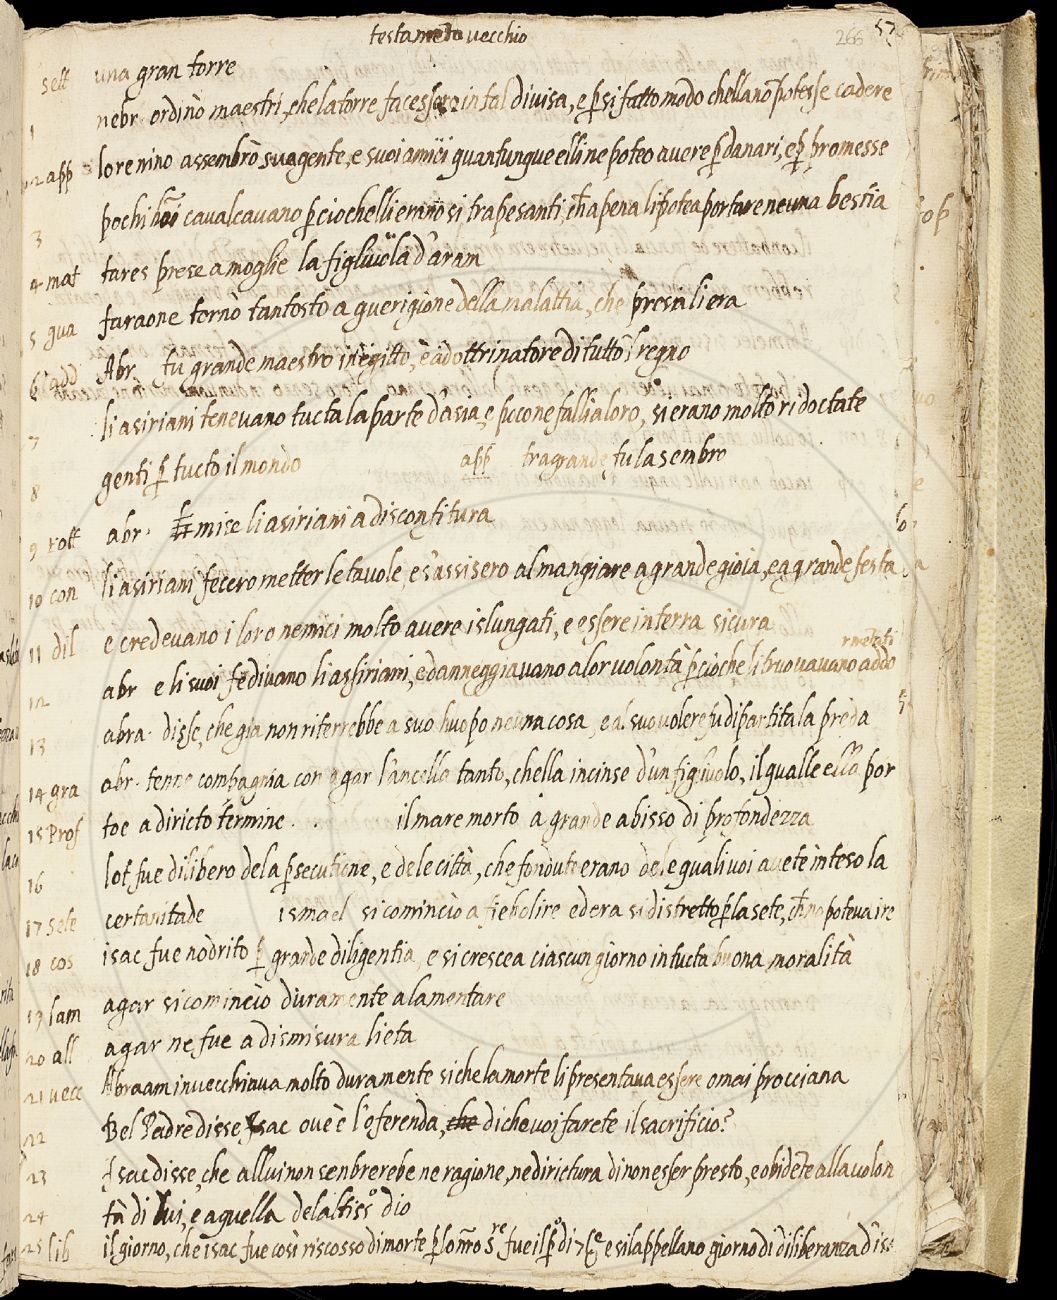 testamēto vecchio
266 57
sett una gran torre
1 nebr. ordinò maestri, che la torre facessero in tal divisa, e p̄ si fatto modo chella nō potesse cadere
2 app lore nino assembrò sua gente, e suoi amici quantunque elli ne poteo avere p̄ danari, e p̄ promesse
3 pochi cavalcavano p̄ cio chelli erano si trapesanti, ch̄ apena li potea portare neuna bestia
4 mat tares prese a moglie la figliuola d'aram
5 gua faraone tornò tantosto a guerigione della malattia, che presa li era
6 add Abr. fu grande maestro in egitto, è adottrinatore di tutto 'l regno
7 li asiriani tenevano tucta la parte d'asia, e p̄ cio ne fallia loro, si erano molto ridoctate
8 genti p̄ tucto il mondo app tragrande fu lasembro
9 rott abr. mise li asiriani a disconfitura
10 con li asiriani fecero metter le tavole, e s'assisero al mangiare a grande gioia, e a grande festa
11 dil e credevano i loro nemici molto avere islungati, e essere in terra sicura
rmētati
12 abr e li suoi fedivano li assiriani, e danneggiavano a lor volontà p̄ cio che li truovavano addo
13 abra. disse, che gia non riterrebbe a suo huopo neuna cosa, e al suo volere fu dipartita la preda
14 gra abr. tenne compagnia con agar l'ancella tanto, chella incinse d'un figiuolo, il qualle ella por
15 Prof toe a diricto termine . . il mare morto à grande abisso di profondezza
16 lot fue dilibero dela p̄secutione, e dele città, che fondute erano dele quali voi avete inteso la
17 sete certanitade ismael si cominciò a fiebolire ed era si distretto p̄ la sete, ch̄ nō poteva ire
18 cos isac fue nodrito p̄ grande diligentia, e si crescea ciascun giorno in tucta buona moralità
19 lam agar si cominciò duramente a lamentare
20 all agar ne fue a dismisura lieta
21 vecc Abraam invecchiava molto duramente siche la morte li presentava essere omai procciana
22 Bel Padre disse, Isac ove è l'oferenda, che di che voi farete il sacrificio?
23 Isac disse, che allui non senbrerebe ne ragione, ne dirictura di non esser presto, e obidēte alla volon
24 tà di lui, e aquella del altisso dio
25 lib il giorno, che isac fue così riscosso di morte fue il e si lappellano giorno di diliberanza d'is